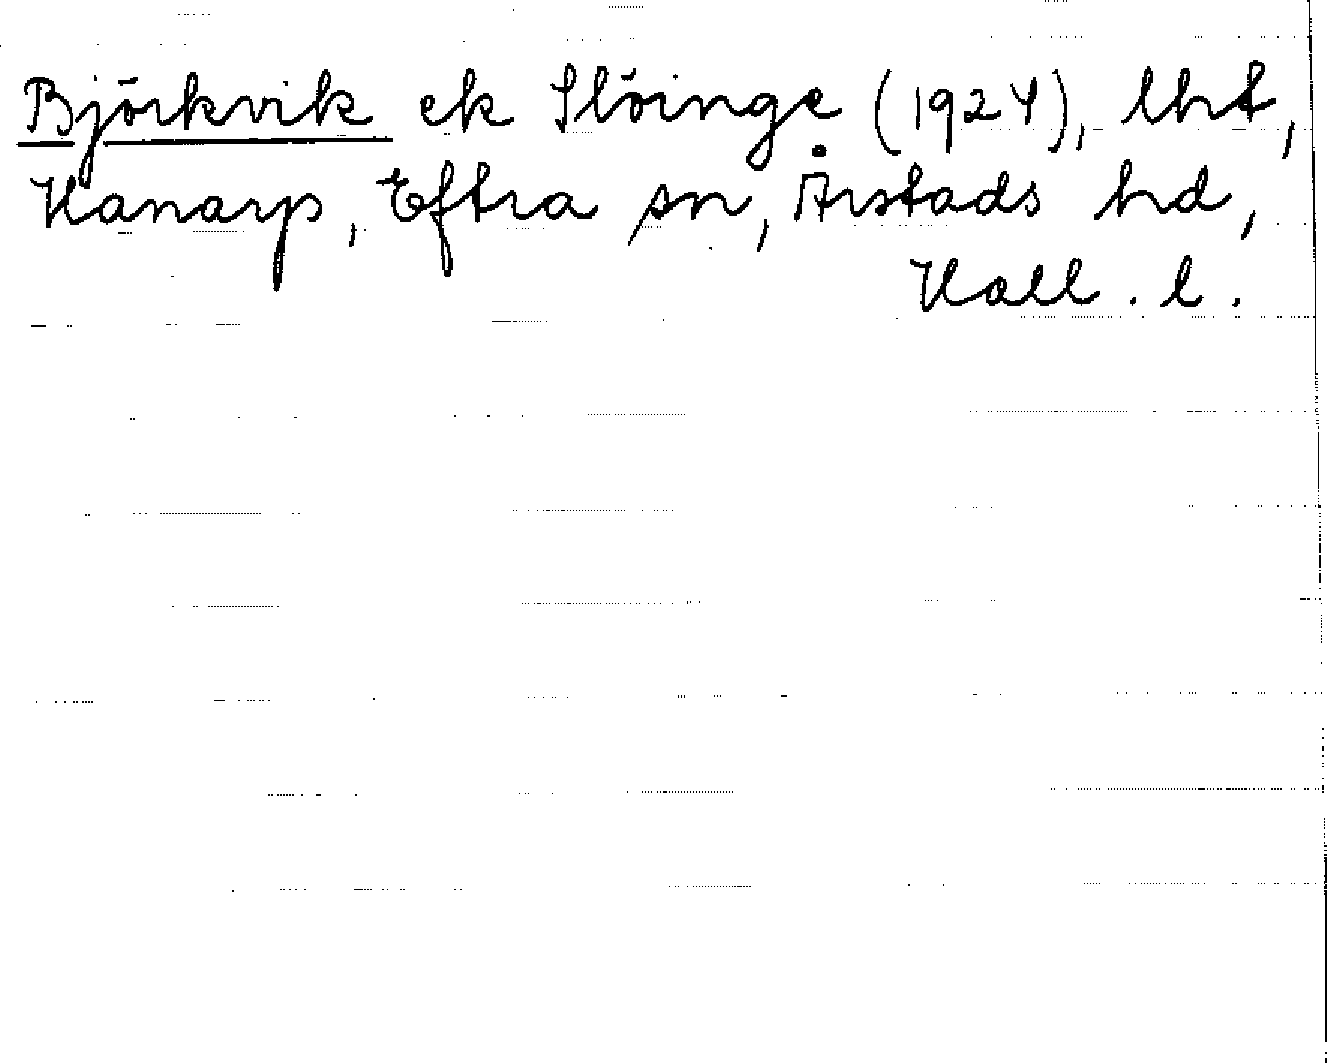 Björkvik ek Slöinge (1924), lht,
Hanarp, Eftra sn, Årstads hd,
Hall. l.